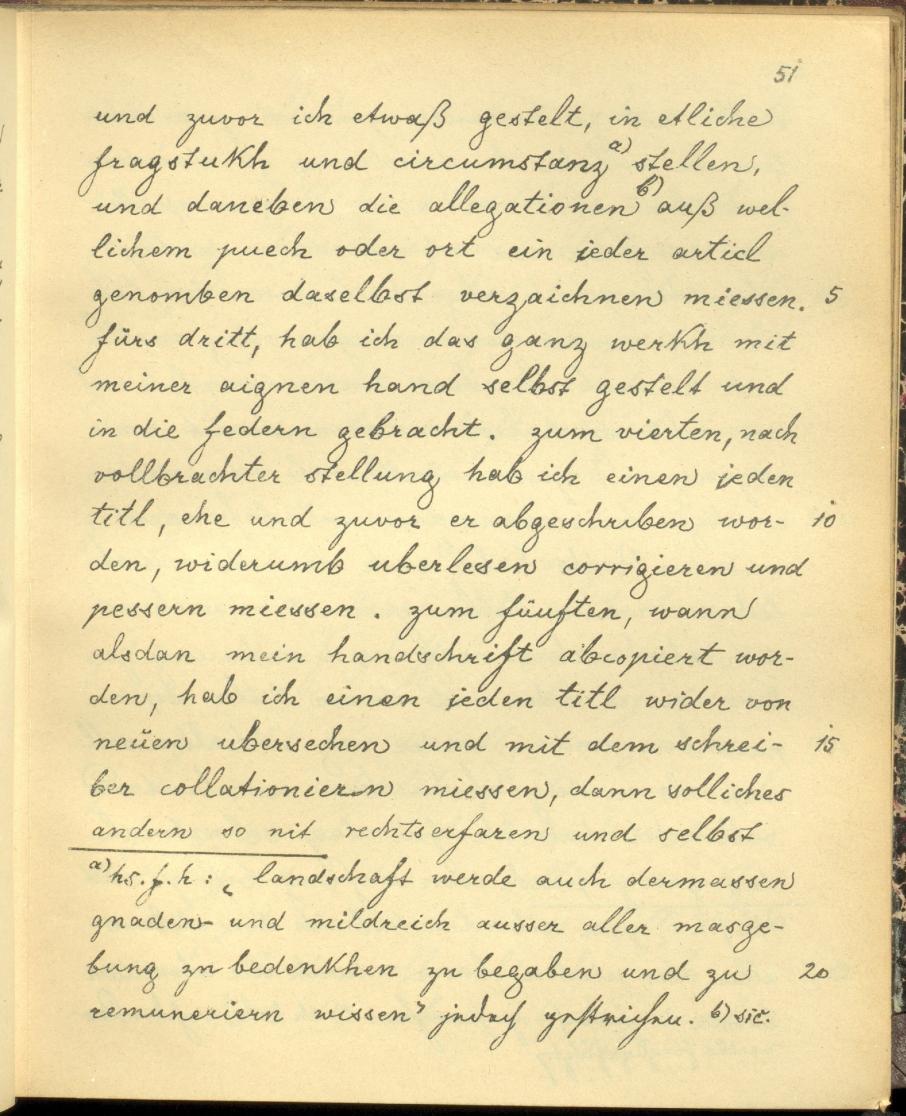 51
und zuvor ich etwaß gestelt, in etliche
fragstukh und circumstanz a) stellen,
und daneben die allegationen b) auß wel-
lichem puech oder ort ein jeder articl
genomben daselbst verzaichnen miessen. 5
fürs dritt, hab ich das ganz werkh mit
meiner aignen hand selbst gestelt und
in die federn gebracht. zum vierten, nach
vollbrachter stellung hab ich einen jeden
titl, ehe und zuvor er abgeschriben wor- 10
den, widerumb uberlesen corrigieren und
pessern miessen. zum füuften, wann
alsdan mein handschrift abcopiert wor-
den, hab ich einen jeden titl wider von
neüen ubersechen und mit dem schrei- 15
ber collationiern miessen, dann solliches
andern so nit rechtserfaren und selbst
a) hs. f. h: „landschaft werde auch dermassen
gnaden- und mildreich ausser aller masge-
bung zu bedenkhen zu begaben und zu 20
remuneriern wissen" jedoch gestrichen. b) sic.